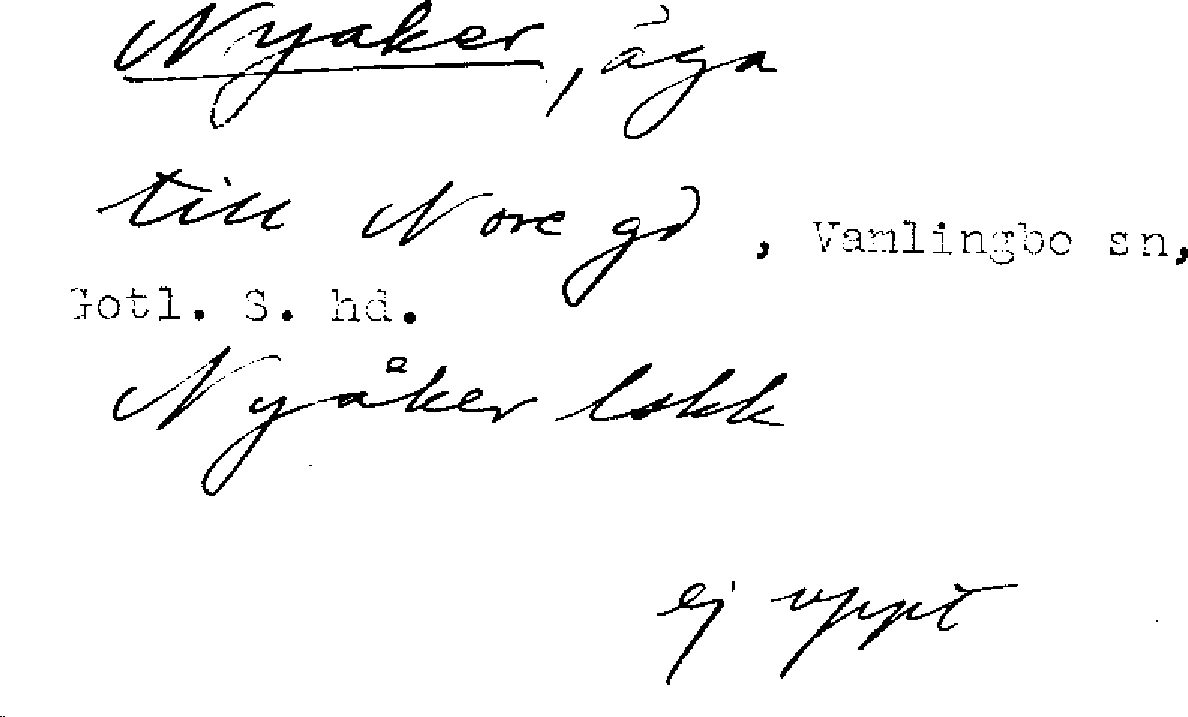 Nyaker, äga
till Nore gd, Vamlingbo sn,
Gotl. S. hd.
Nyåker lokk
ej uppt